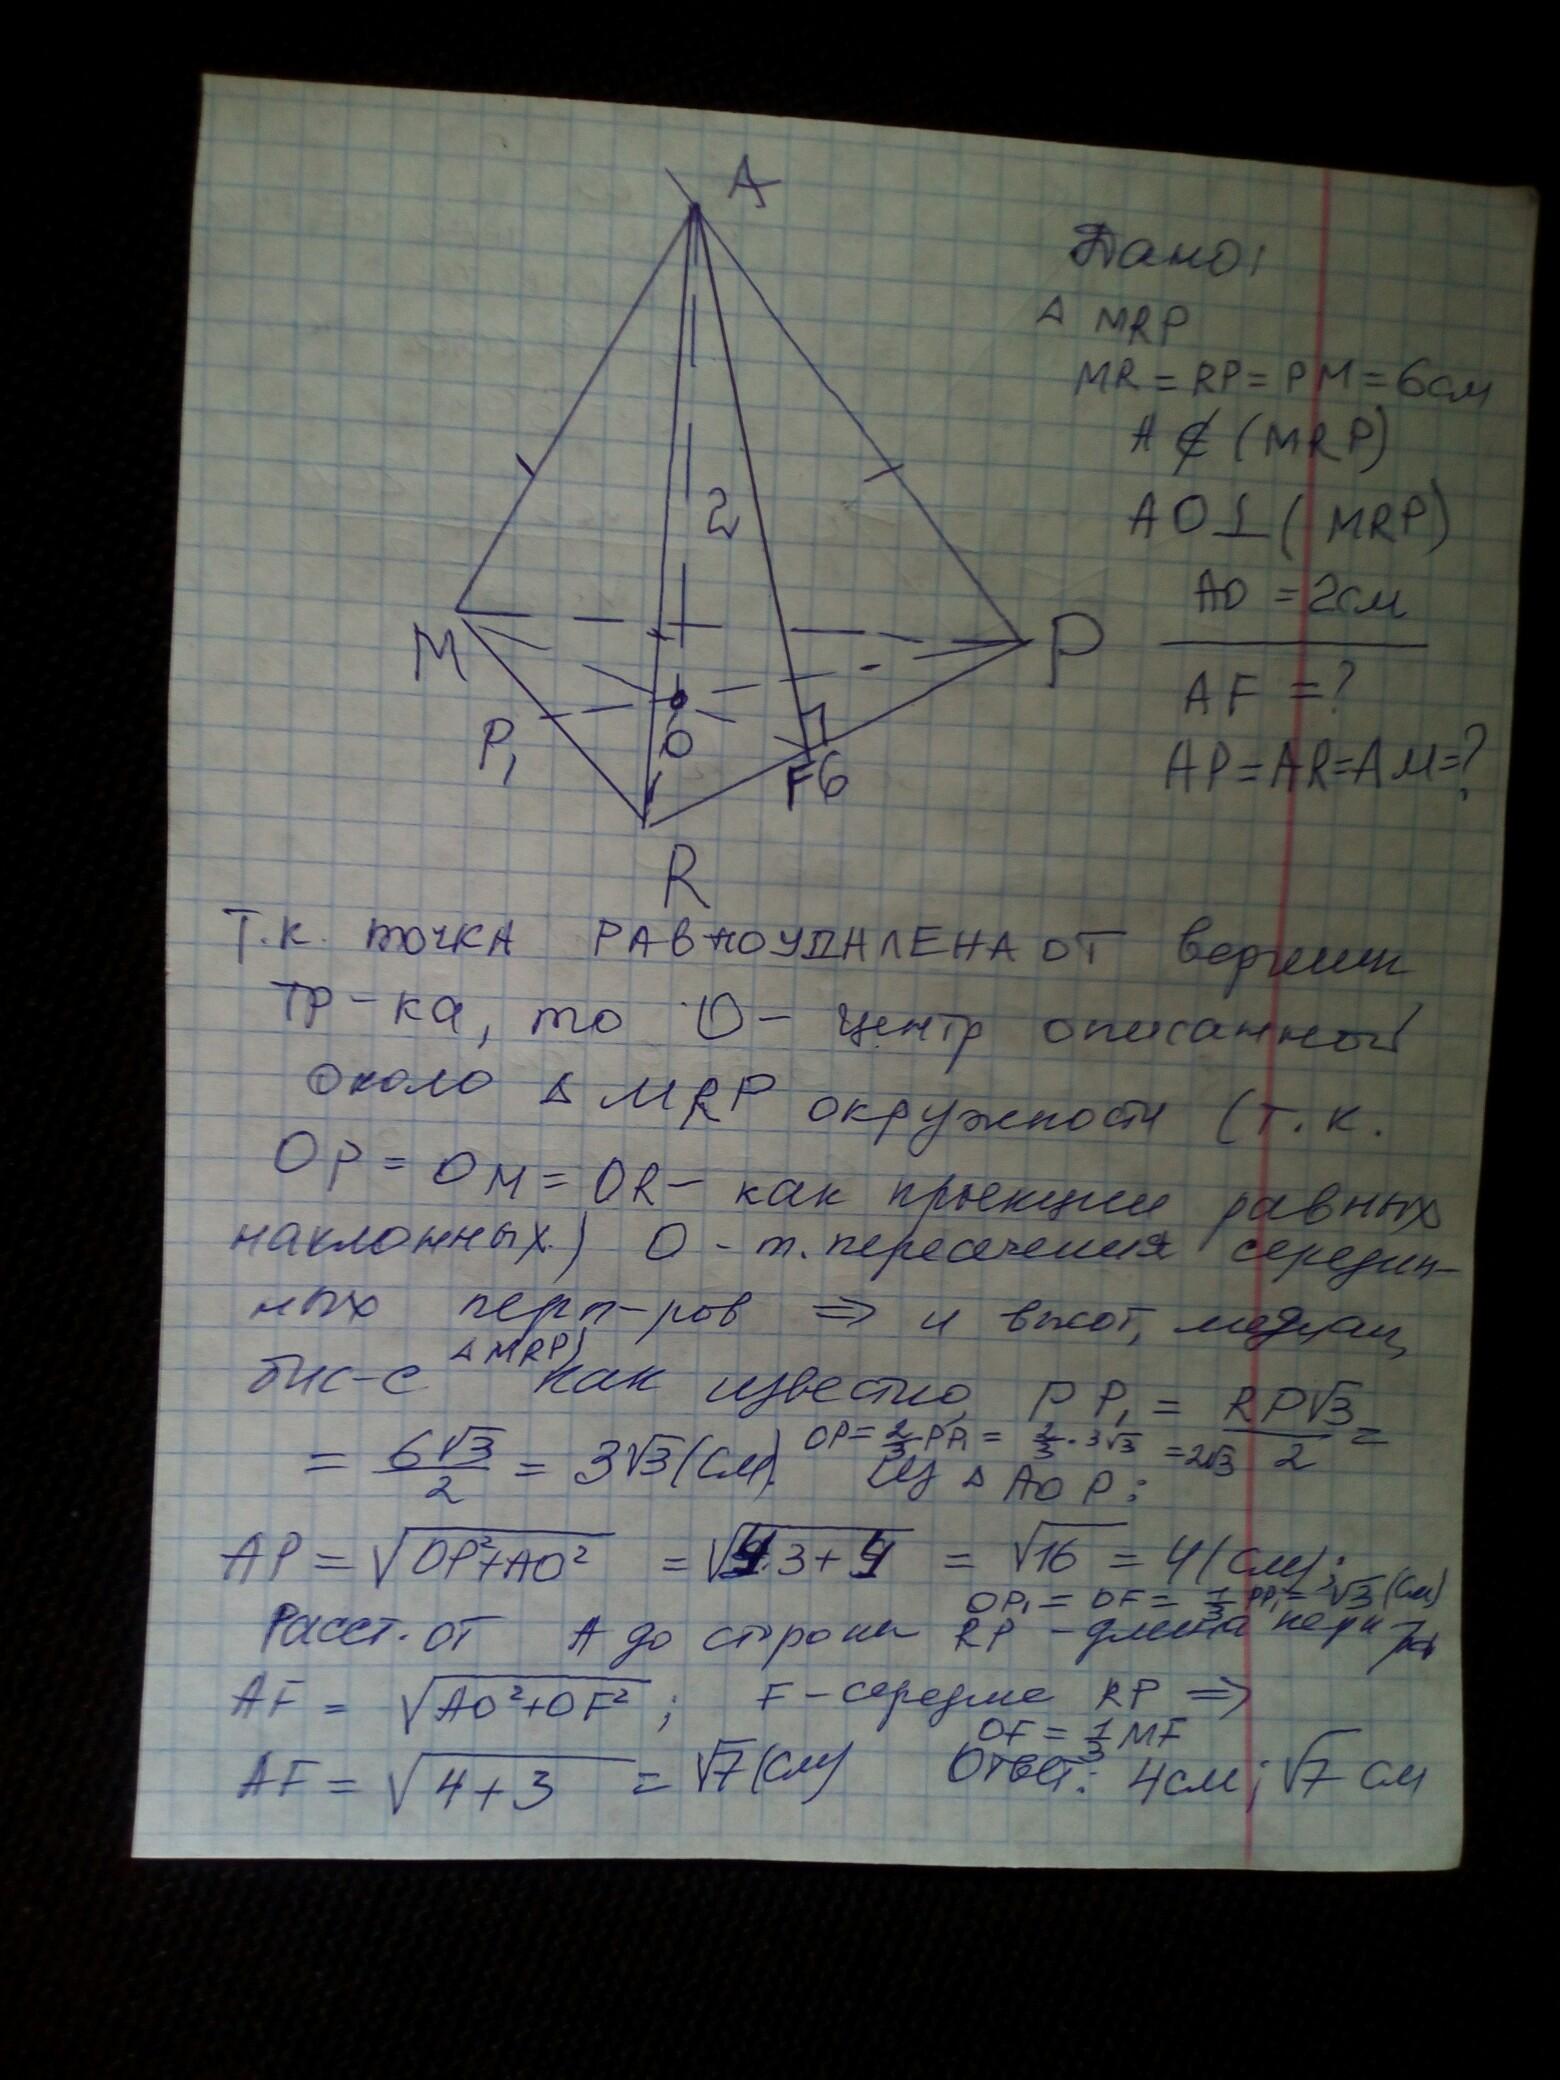 A
2
M
P
P₁
O
F6
R
Дано:
△ MRP
MR = RP = PM = 6см
A ∉ (MRP)
AO ⊥ (MRP)
AO = 2см
AF = ?
AP = AR = AM = ?
Т.к. точка РАВНОУДАЛЕНА ОТ вершин
тр-ка, то O - центр описанной
около △ MRP окружности (т.к.
OP = OM = OR - как проекции равных
наклонных) O - т. пересечения середин-
ных перп-ров ⇒ и высот, медиан,
бис-с △MRP) как известно, PP₁ = RP√3/2 =
= 6√3/2 = 3√3 (см). OP = 2/3 PP₁ = 2/3 · 3√3 = 2√3 Из △ AOP:
AP = √(OP² + AO²) = √(4·3 + 4) = √16 = 4 (см);
OP₁ = OF = 1/3 PP₁ = √3 (см)
Расст. от A до стороны RP - длина перп-ра
AF = √(AO² + OF²); F - середине RP ⇒
OF = 1/3 MF
AF = √(4 + 3) = √7 (см) Ответ: 4см; √7 см